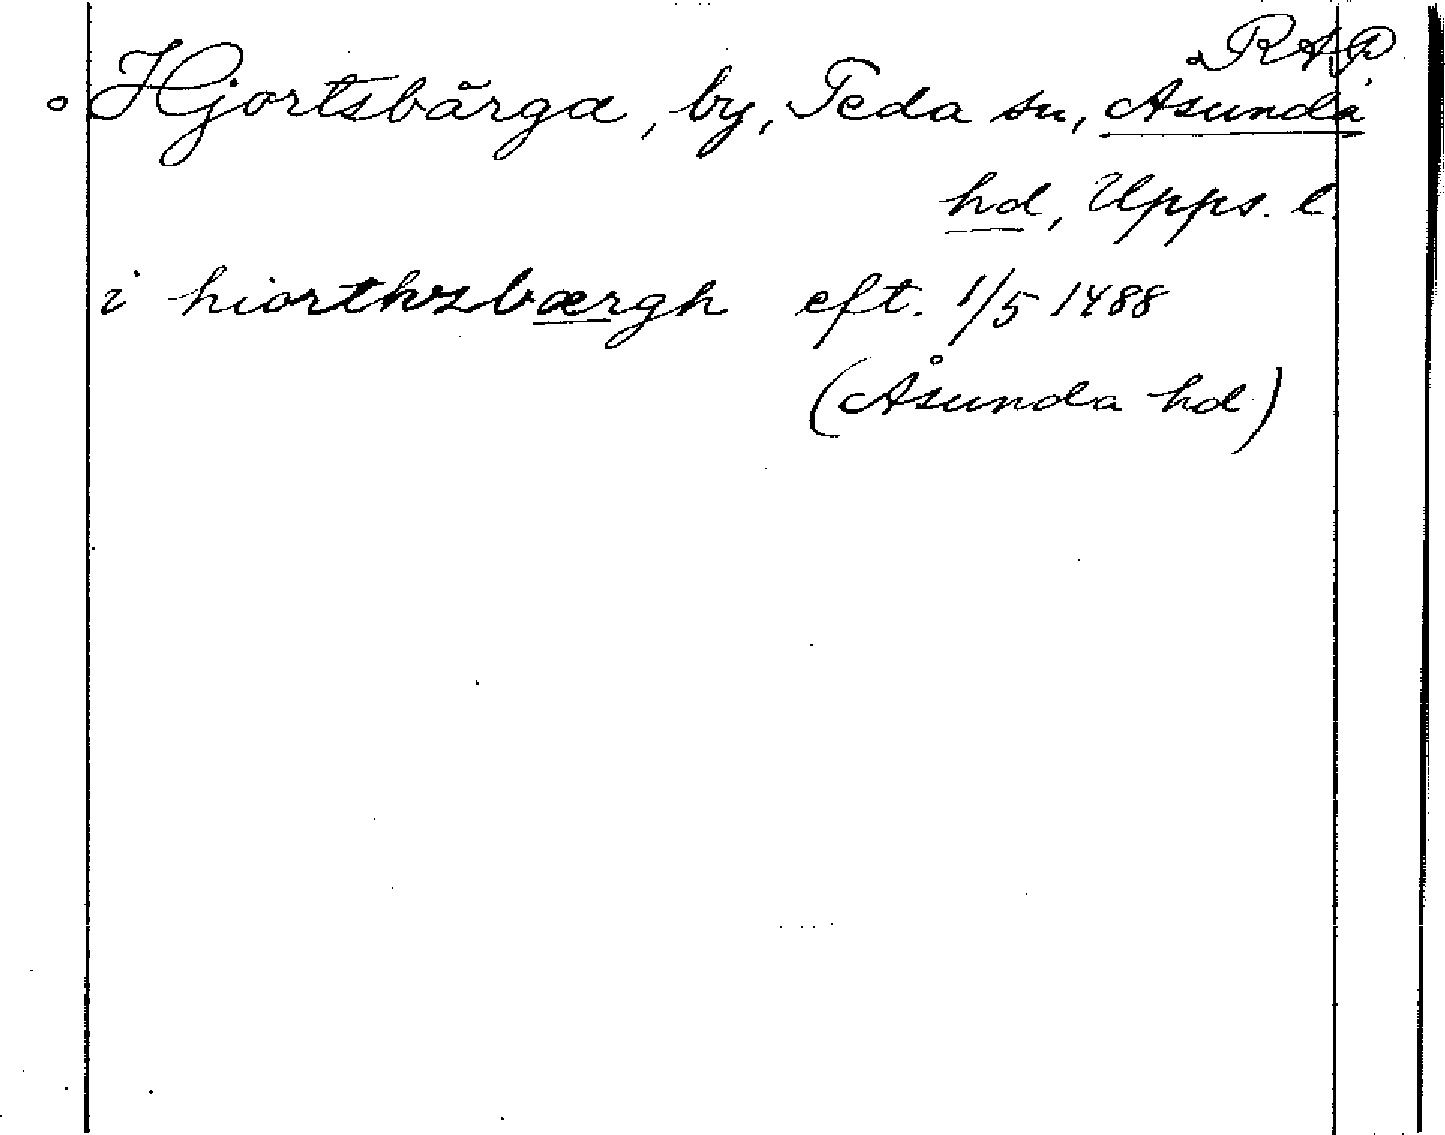 RAP
Hjortsbärga, by, Teda sn, Åsunda
hd, Upps. l.
i hiorthzbærgh eft. 1/5 1488
(Åsunda hd)